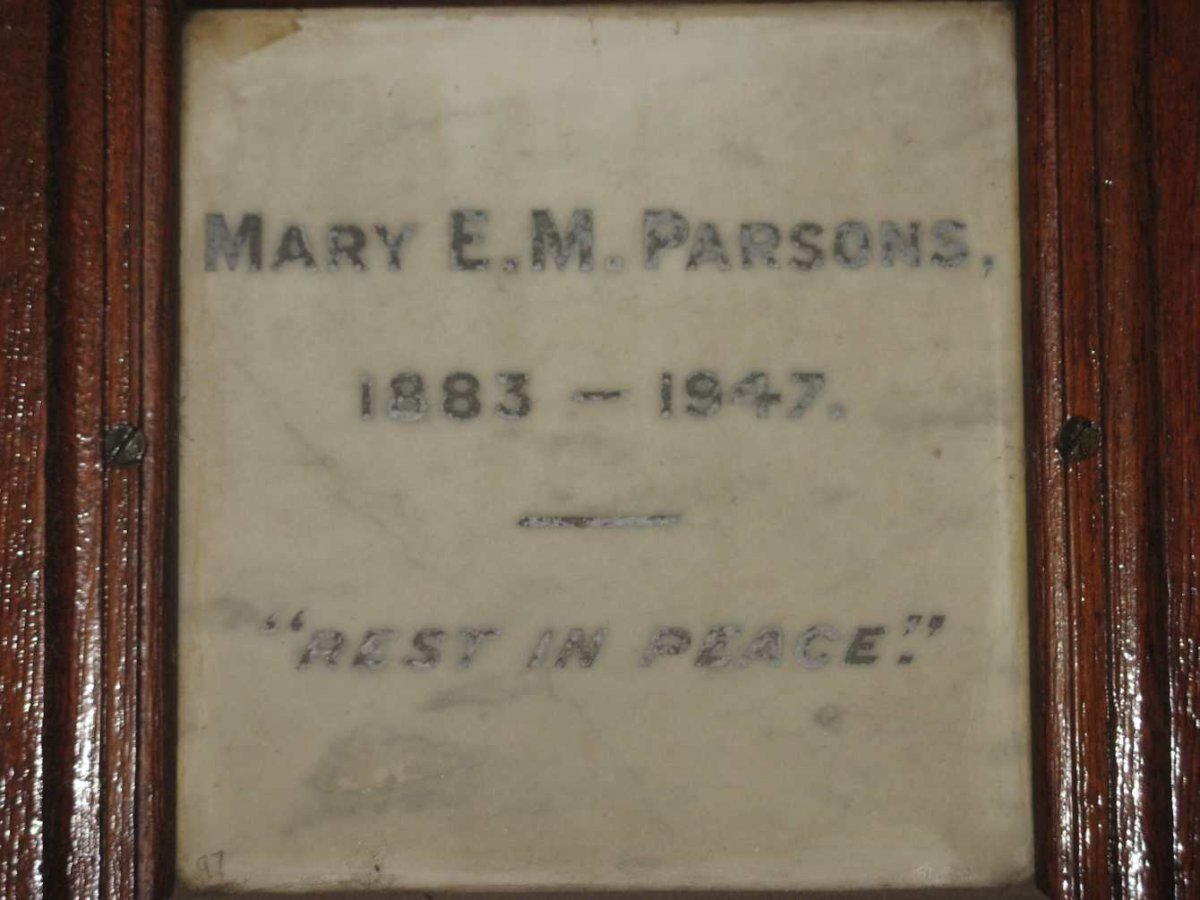 MARY E.M. PARSONS,
1883 – 1947.
"REST IN PEACE."
97